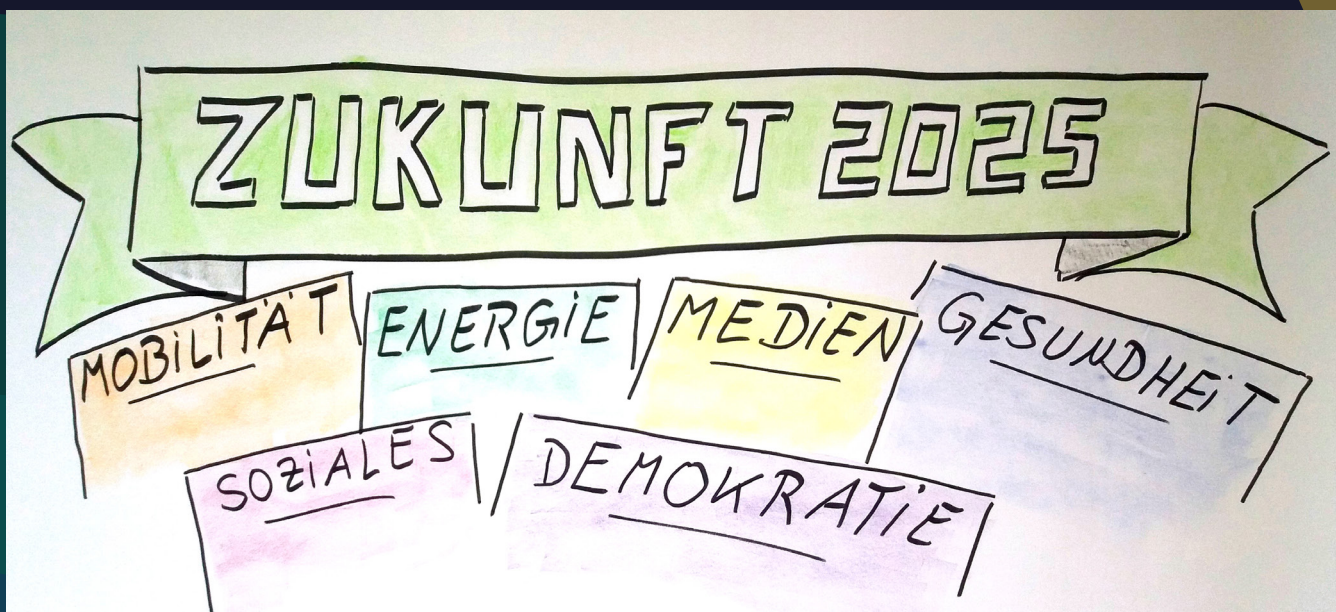 ZUKUNFT 2025
MOBiLiTÄT
ENERGiE
MEDiEN
GESUNDHEiT
SOZiALES
DEMOKRATiE